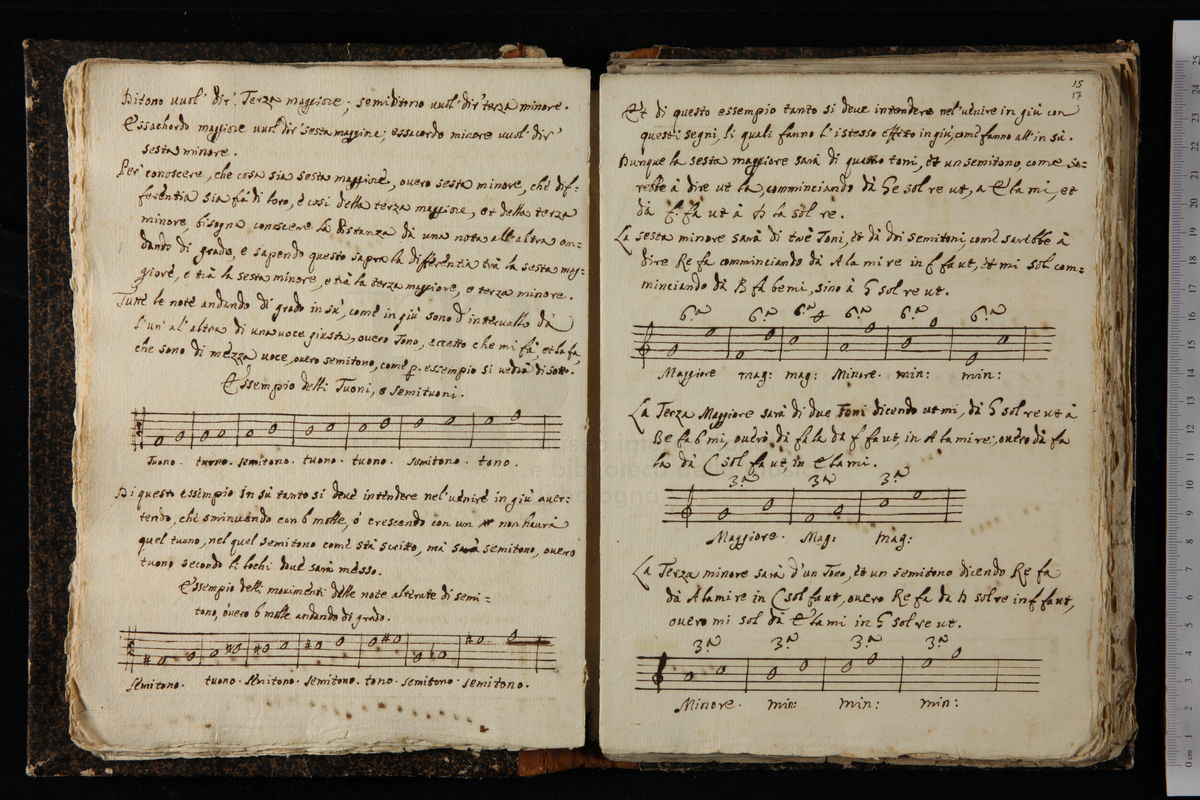 Ditono vuol' dir', Terza maggiore; semiditono vuol' dir' terza minore.
Essachordo maggiore vuol' dir' sesta maggiore; essacordo minore vuol' dir'
sesta minore.
Per conoscere, che cosa sia sesta maggiore, overo sesta minore, che dif=
ferentia sia fà di loro, e così della terza maggiore, et della terza
minore, bisogna conoscere la distanza di una nota all'altra an=
dando di grado, e sapendo questo sapra la differentia trà la sesta mag=
giore, e trà la sesta minore, e trà la terza maggiore, e terza minore.
Tutte le note andando di grado in sù, come in giù sono d'intervallo da
l'un' al' altra di una voce giusta, overo Tono, eccetto che mi fà, et la fa,
che sono di mezza voce, overo semitono, come p. essempio si vedrà di sotto.
Essempio delli Tuoni, e Semituoni.
Tuono. tuono. semitono. tuono. tuono. semitono. tono.
Di questo essempio in sù tanto si deve intendere nel' venire in giù aver=
tendo, che sminuendo con b molle, ò crescendo con un # non haurà
quel tuono, nel quel semitono come stà scritto, mà sarà semitono, overo
tuono secondo li lochi dove sarà messo.
Essempio delli movimenti delle note alterate di semi=
tono, overo b molle andando di grado.
Semitono. tuono. semitono. semitono. tono. semitono. semitono.
15
17
Et di questo essempio tanto si deve intendere nel' venire in giù con
questi segni, li quali fanno l'istesso effeto in giù, come fanno all' in sù.
Dunque la sesta maggiore sarà di quatto toni, et un semitono, come sa=
rebbe à dire ut la, comminciando dà Ge sol re ut, a E la mi, et
dà f. fa ut à D la sol re.
La sesta minore sarà di trè Toni, et dà doi semitoni, come sarebbe à
dire Re fa comminciando dà A la mi re in f fa ut, et mi sol com=
minciando dà B fà be mi, sino à G sol re ut.
6.a 6.a 6.a # 6.a 6.a 6.a
Maggiore mag: mag: Minore. min: min:
La Terza Maggiore sarà di due Toni dicendo ut mi, dà G sol re ut à
Be fa b mi, overo dà fa la da f fa ut, in A la mi re, overo dà fa
la dà C sol fa ut, in E la mi.
3.a 3.a 3.a
Maggiore. Mag: mag:
La Terza minore sarà d'un Tono, et un semitono dicendo Re fa
dà A la mi re in C sol fa ut, overo Re fa da D sol re in f fa ut,
overo mi sol dà E la mi in G sol re ut.
3.a 3.a 3.a 3.a
Minore. min: min: min: